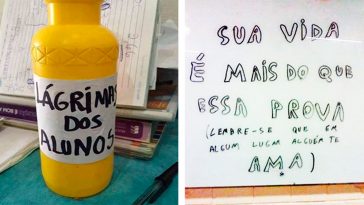 LÁGRIMAS
DOS
ALUNOS
SUA VIDA
É MAIS DO QUE
ESSA PROVA
(LEMBRE-SE QUE EM
ALGUM LUGAR ALGUÉM TE
AMA)